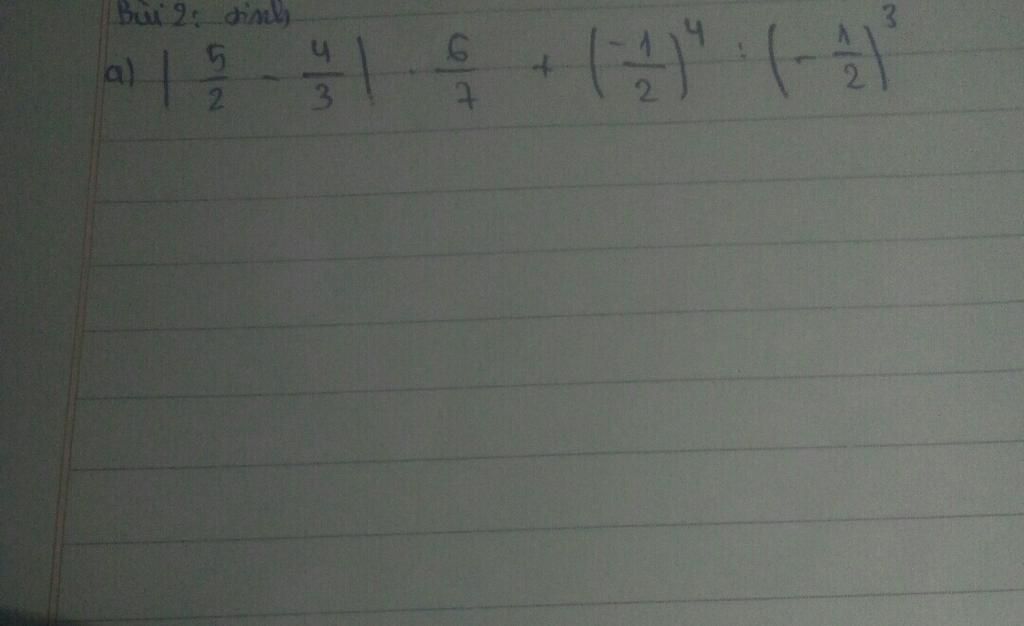 Bài 2: tính
a) | 5/2 - 4/3 | . 6/7 + (-1/2)^4 : (-1/2)^3